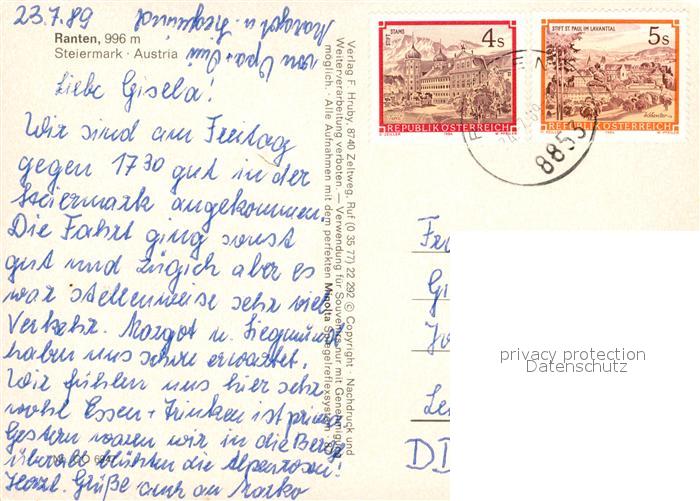 23.7.89
Ranten, 996 m
Steiermark · Austria
Liebe Gisela!
Wir sind am Freitag
gegen 17 30 gut in der
Steiermark angekommen.
Die Fahrt ging sonst
gut und zügich aber es
war stellenweise sehr viel
Verkehr. Margot u. Siegmund
haben uns schon erwartet.
Wir fühlen uns hier sehr
wohl Essen + Trinken ist prima
Gestern waren wir in die Berge
überall blühten die Alpenrosen!
Herzl. Grüße auch an Marko
von Opa + Omi
Margot u. Siegmund
Verlag F. Hruby, 8740 Zeltweg, Ruf (0 35 77) 22 292 © Copyright · Nachdruck und
Weiterverarbeitung verboten. — Verwendung für Souvenirs nur mit Genehmigung
möglich · Alle Aufnahmen mit dem perfekten Minolta Spiegelreflexsystem
STIFT STAMS
4 S
REPUBLIK ÖSTERREICH
STIFT ST. PAUL IM LAVANTTAL
5 S
REPUBLIK ÖSTERREICH
8853
Fr
Gi
Le
DD
privacy protection
Datenschutz